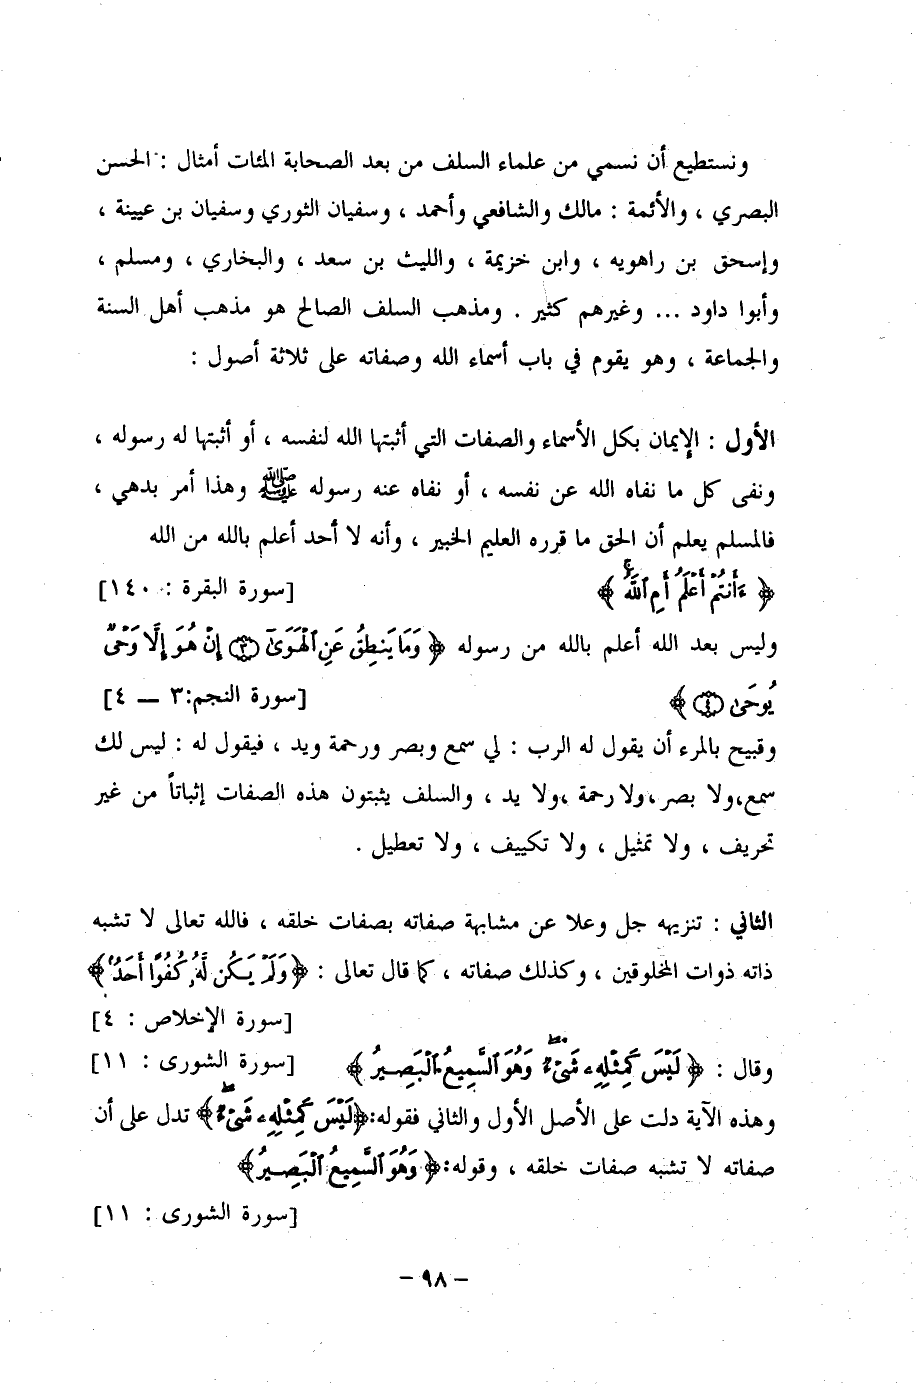 ونستطيع أن نسمي من علماء السلف من بعد الصحابة المئات أمثال : الحسن
البصري ، والأئمة : مالك والشافعي وأحمد ، وسفيان الثوري وسفيان بن عيينة ،
وإسحق بن راهويه ، وابن خزيمة ، والليث بن سعد ، والبخاري ، ومسلم ،
وأبوا داود ... وغيرهم كثير . ومذهب السلف الصالح هو مذهب أهل السنة
والجماعة ، وهو يقوم في باب أسماء الله وصفاته على ثلاثة أصول :
الأول : الإيمان بكل الأسماء والصفات التي أثبتها الله لنفسه ، أو أثبتها له رسوله ،
ونفى كل ما نفاه الله عن نفسه ، أو نفاه عنه رسوله ﷺ وهذا أمر بدهي ،
فالمسلم يعلم أن الحق ما قرره العليم الخبير ، وأنه لا أحد أعلم بالله من الله
﴿ ءَأَنتُمْ أَعْلَمُ أَمِ ٱللَّهُ ۗ ﴾ [سورة البقرة : ١٤٠]
وليس بعد الله أعلم بالله من رسوله ﴿ وَمَا يَنطِقُ عَنِ ٱلْهَوَىٰٓ ۝٣ إِنْ هُوَ إِلَّا وَحْىٌ
يُوحَىٰ ۝٤ ﴾ [سورة النجم:٣ — ٤]
وقبيح بالمرء أن يقول له الرب : لي سمع وبصر ورحمة ويد ، فيقول له : ليس لك
سمع،ولا بصر،ولا رحمة ،ولا يد ، والسلف يثبتون هذه الصفات إثباتاً من غير
تحريف ، ولا تمثيل ، ولا تكييف ، ولا تعطيل .
الثاني : تنزيهه جل وعلا عن مشابهة صفاته بصفات خلقه ، فالله تعالى لا تشبه
ذاته ذوات المخلوقين ، وكذلك صفاته ، كما قال تعالى : ﴿ وَلَمْ يَكُن لَّهُۥ كُفُوًا أَحَدٌۢ ﴾
[سورة الإخلاص : ٤]
وقال : ﴿ لَيْسَ كَمِثْلِهِۦ شَىْءٌ ۖ وَهُوَ ٱلسَّمِيعُ ٱلْبَصِيرُ ﴾ [سورة الشورى : ١١]
وهذه الآية دلت على الأصل الأول والثاني فقوله:﴿لَيْسَ كَمِثْلِهِۦ شَىْءٌ ۖ﴾ تدل على أن
صفاته لا تشبه صفات خلقه ، وقوله:﴿ وَهُوَ ٱلسَّمِيعُ ٱلْبَصِيرُ ﴾
[سورة الشورى : ١١]
– ٩٨ –